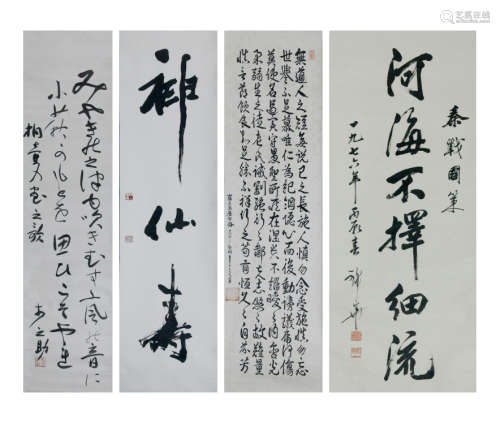 秦戰国策
河海不擇細流
一九七六年丙辰春
無道人之短無説己之長施人慎勿念受施慎勿忘
世譽不足慕唯仁為紀綱隱心而後動謗議庸何傷
無使名過實守愚聖所臧在涅貴不緇曖々内含光
柔弱生之徒老氏誡剛強行々鄙夫志悠々故難量
慎言節飲食知足勝不祥行之苟有恒久々自芬芳
神仙壽
みやぎ野の露吹きむすぶ風の音に
小萩がもとを思ひこそやれ
之助